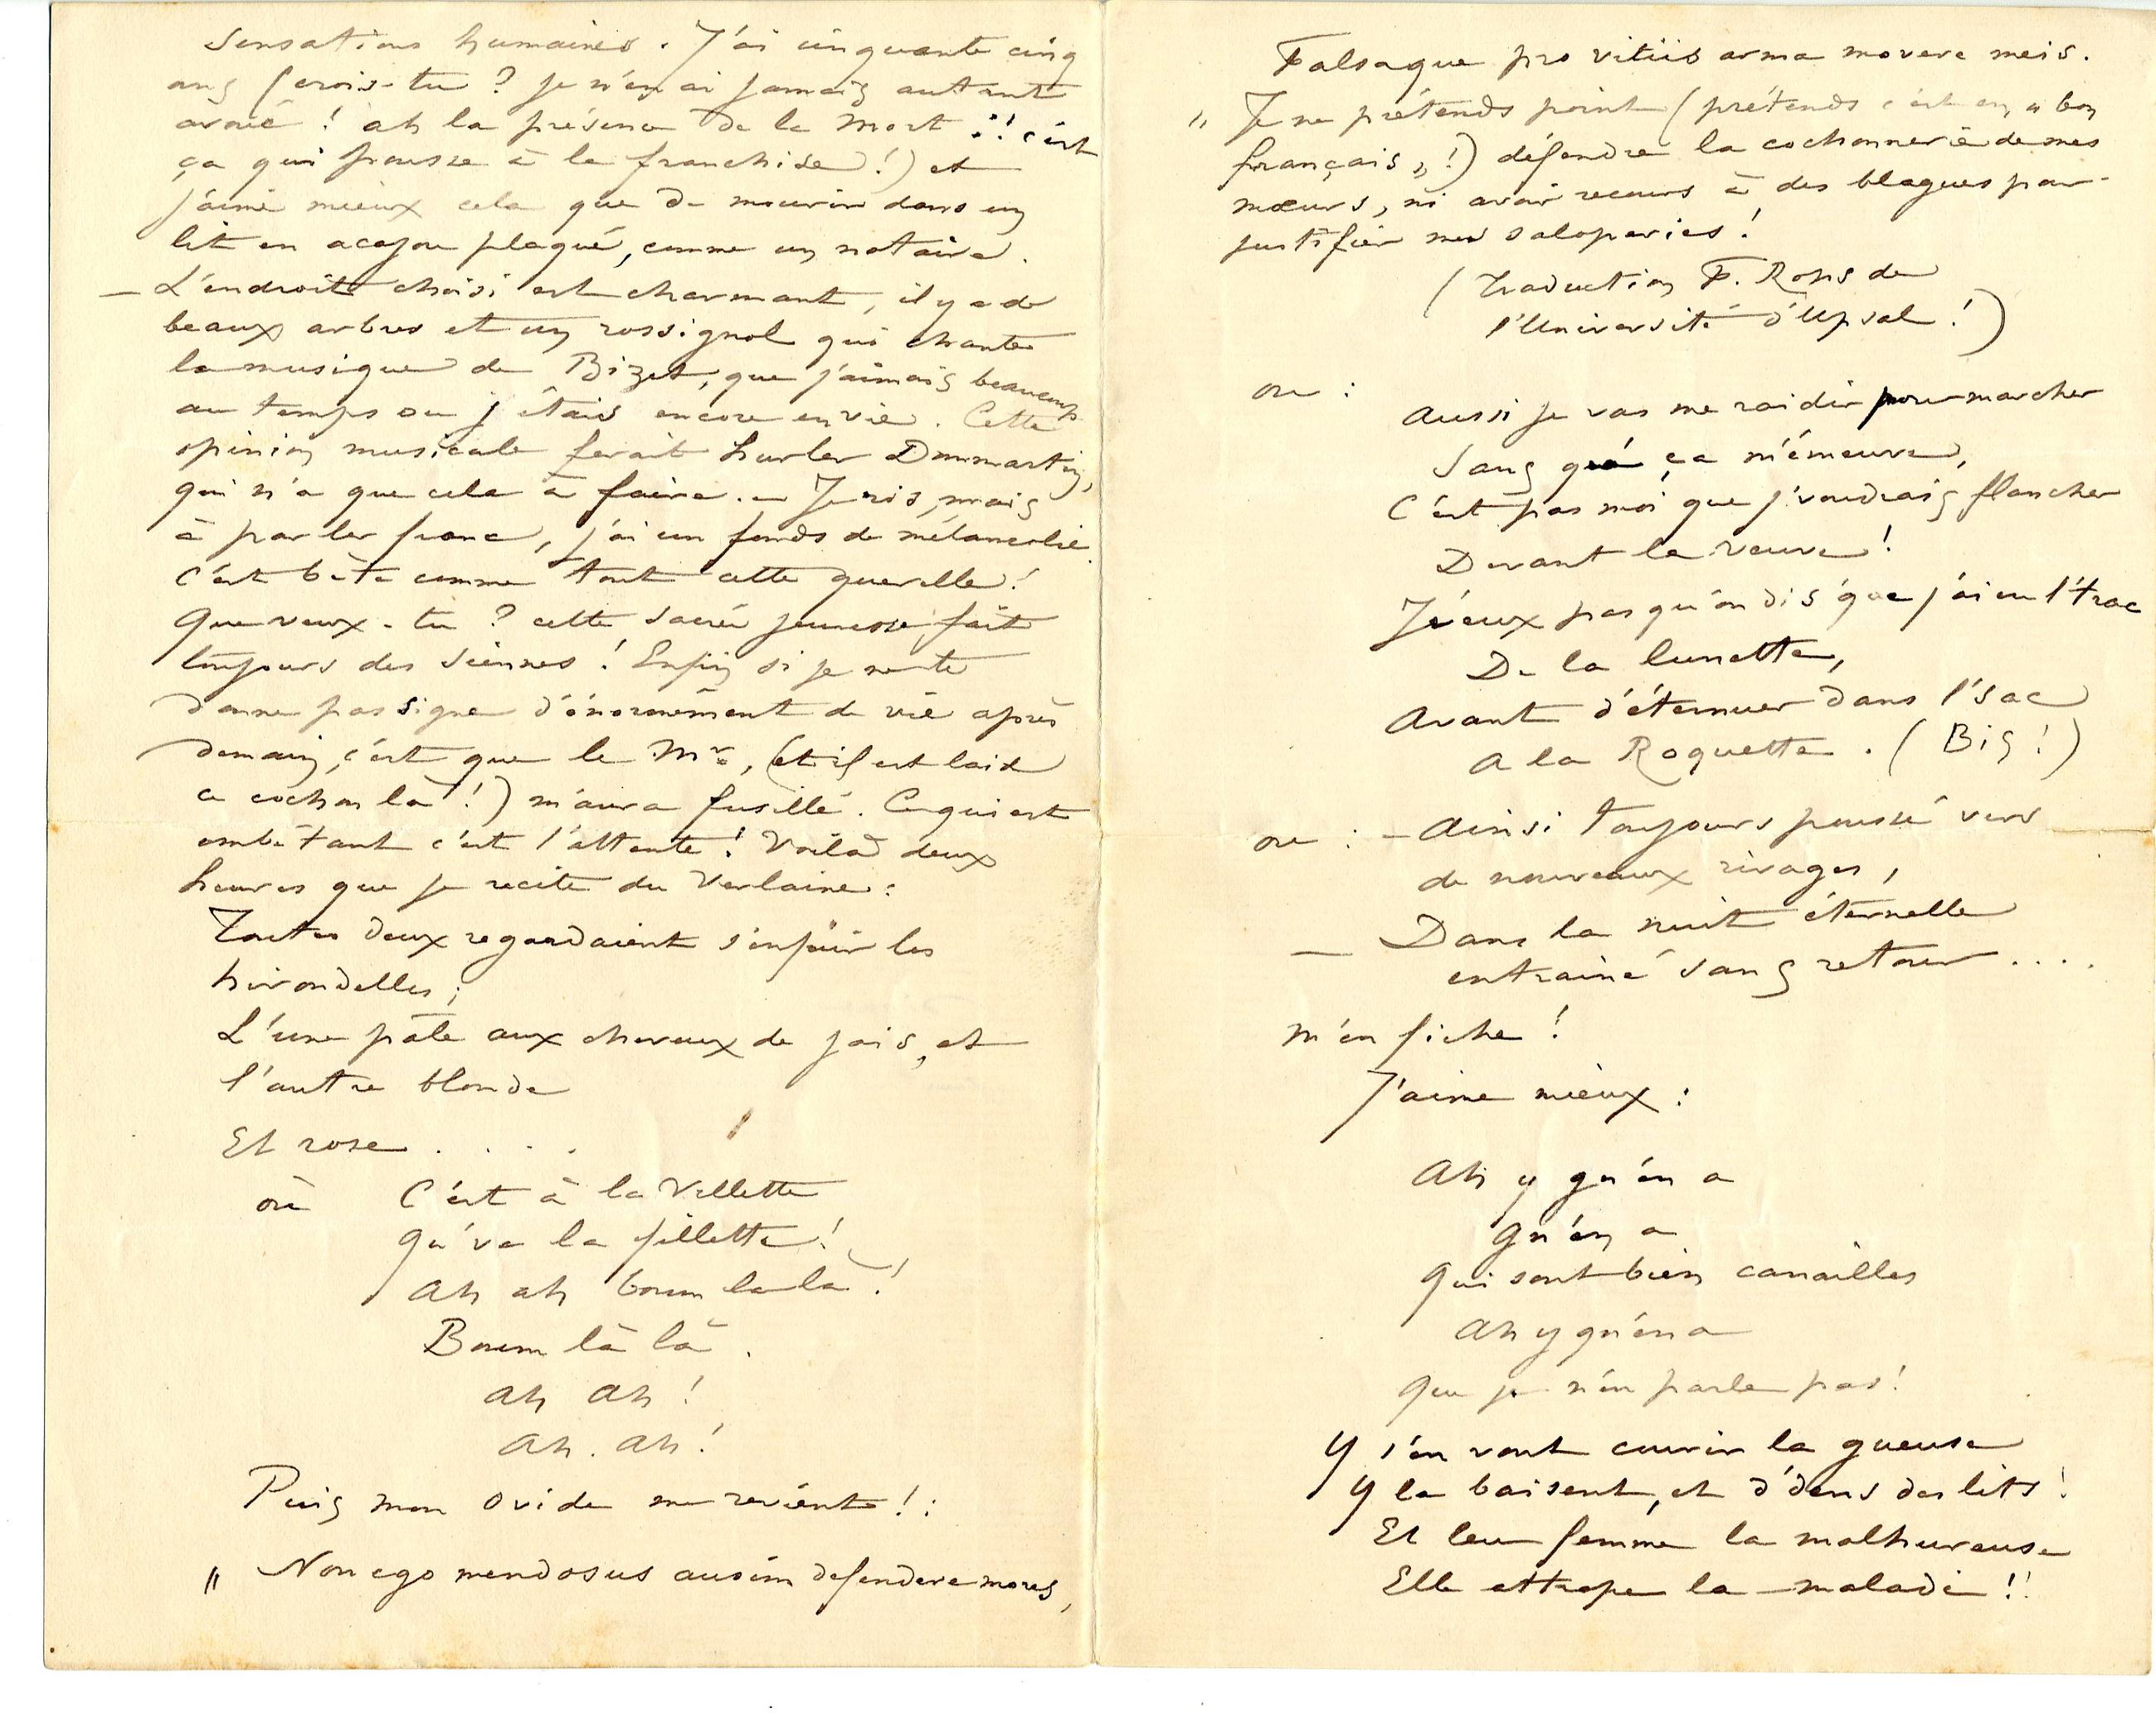 Sensations humaines. J'ai cinquante cinq
ans (crois-tu ? je n'en ai jamais autant
avoué ! ah la présence de la Mort !! c'est
ça qui pousse à la franchise !) et
j'aime mieux cela que de mourir dans un
lit en acajou plaqué, comme un notaire.
— L'endroit choisi est charmant, il y a de
beaux arbres et un rossignol qui chante
la musique de Bizet, que j'aimais beaucoup
au temps ou j'étais encore en vie. Cette
opinion musicale ferait hurler Dommartin,
qui n'a que cela à faire. — Je ris, mais
à parler franc, j'ai un fonds de mélancolie
c'est bête comme tout cette querelle !
Que veux-tu ? cette sacrée jeunesse fait
toujours des siennes ! Enfin si je ne te
donne pas signe d'énormément de vie après
demain, c'est que le Mr, (et il est laid
ce cochon là !) m'aura fusillé. Ce qui est
embêtant c'est l'attente ! Voilà deux
heures que je recite du Verlaine :
Toutes deux regardaient s'enfuir les
hirondelles ;
L'une pâle aux cheveux de jais, et
l'autre blonde
Et rose . . . .
ou C'est à la Villette
Qu'va la fillette !
Ah ah boum la là !
Boum là là .
ah ah !
ah . ah !
Puis mon Ovide me revient ! :
" Non ego mendosus ausim defendere mores,
Falsaque pro vitiis arma movere meis.
" Je ne prétends point (prétends c'est en « bon
français » !) défendre la cochonnerie de mes
mœurs, ni avoir recours à des blagues pour
justifier mes saloperies !
(Traduction F. Rops de
l'Université d'Upsal !)
ou :
Aussi je vas me raidir pour marcher
Sans qu'ça m'émeuve,
C'est pas moi que j'voudrais flancher
Devant la veuve !
J'veux pas qu'on dis'que j'ai eu l'trac
De la lunette,
Avant d'éternuer dans l'sac
A la Roquette . ( Bis ! )
ou : — Ainsi toujours poussé vers
de nouveaux rivages,
— Dans la nuit éternelle
entrainé sans retour ....
M'en fiche !
J'aime mieux :
Ah y qu'en a
Qu'en a
Qui sont bien canailles
Ah y qu'en a
Que je n'en parle pas !
Y s'en vont courir la gueuse
Y la baisent, et d'dans des lits !
Et leu femme la malhureuse
Elle attrape la maladie !!